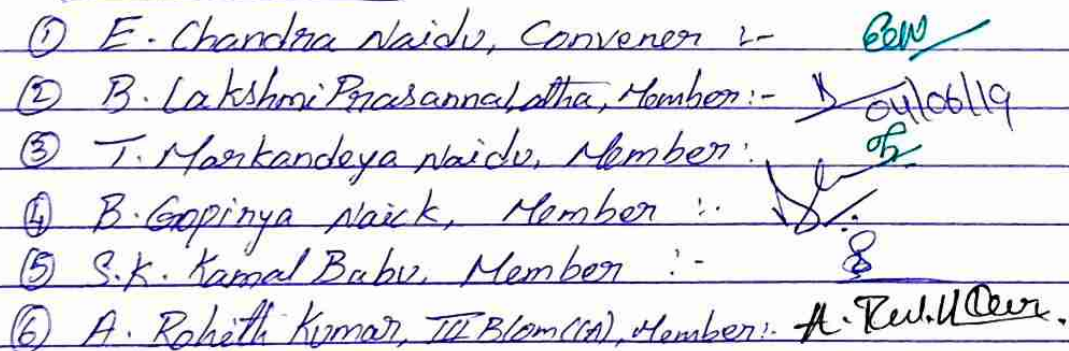 ① E. Chandra Naidu, Convener :-
② B. Lakshmi Prasannalatha, Member:- 04/06/19
③ T. Markandeya Naidu, Member:
④ B. Gopinya Naick, Member :.
⑤ S.K. Kamal Babu, Member :-
⑥ A. Rohith Kumar, III B.Com(CA), Member:-